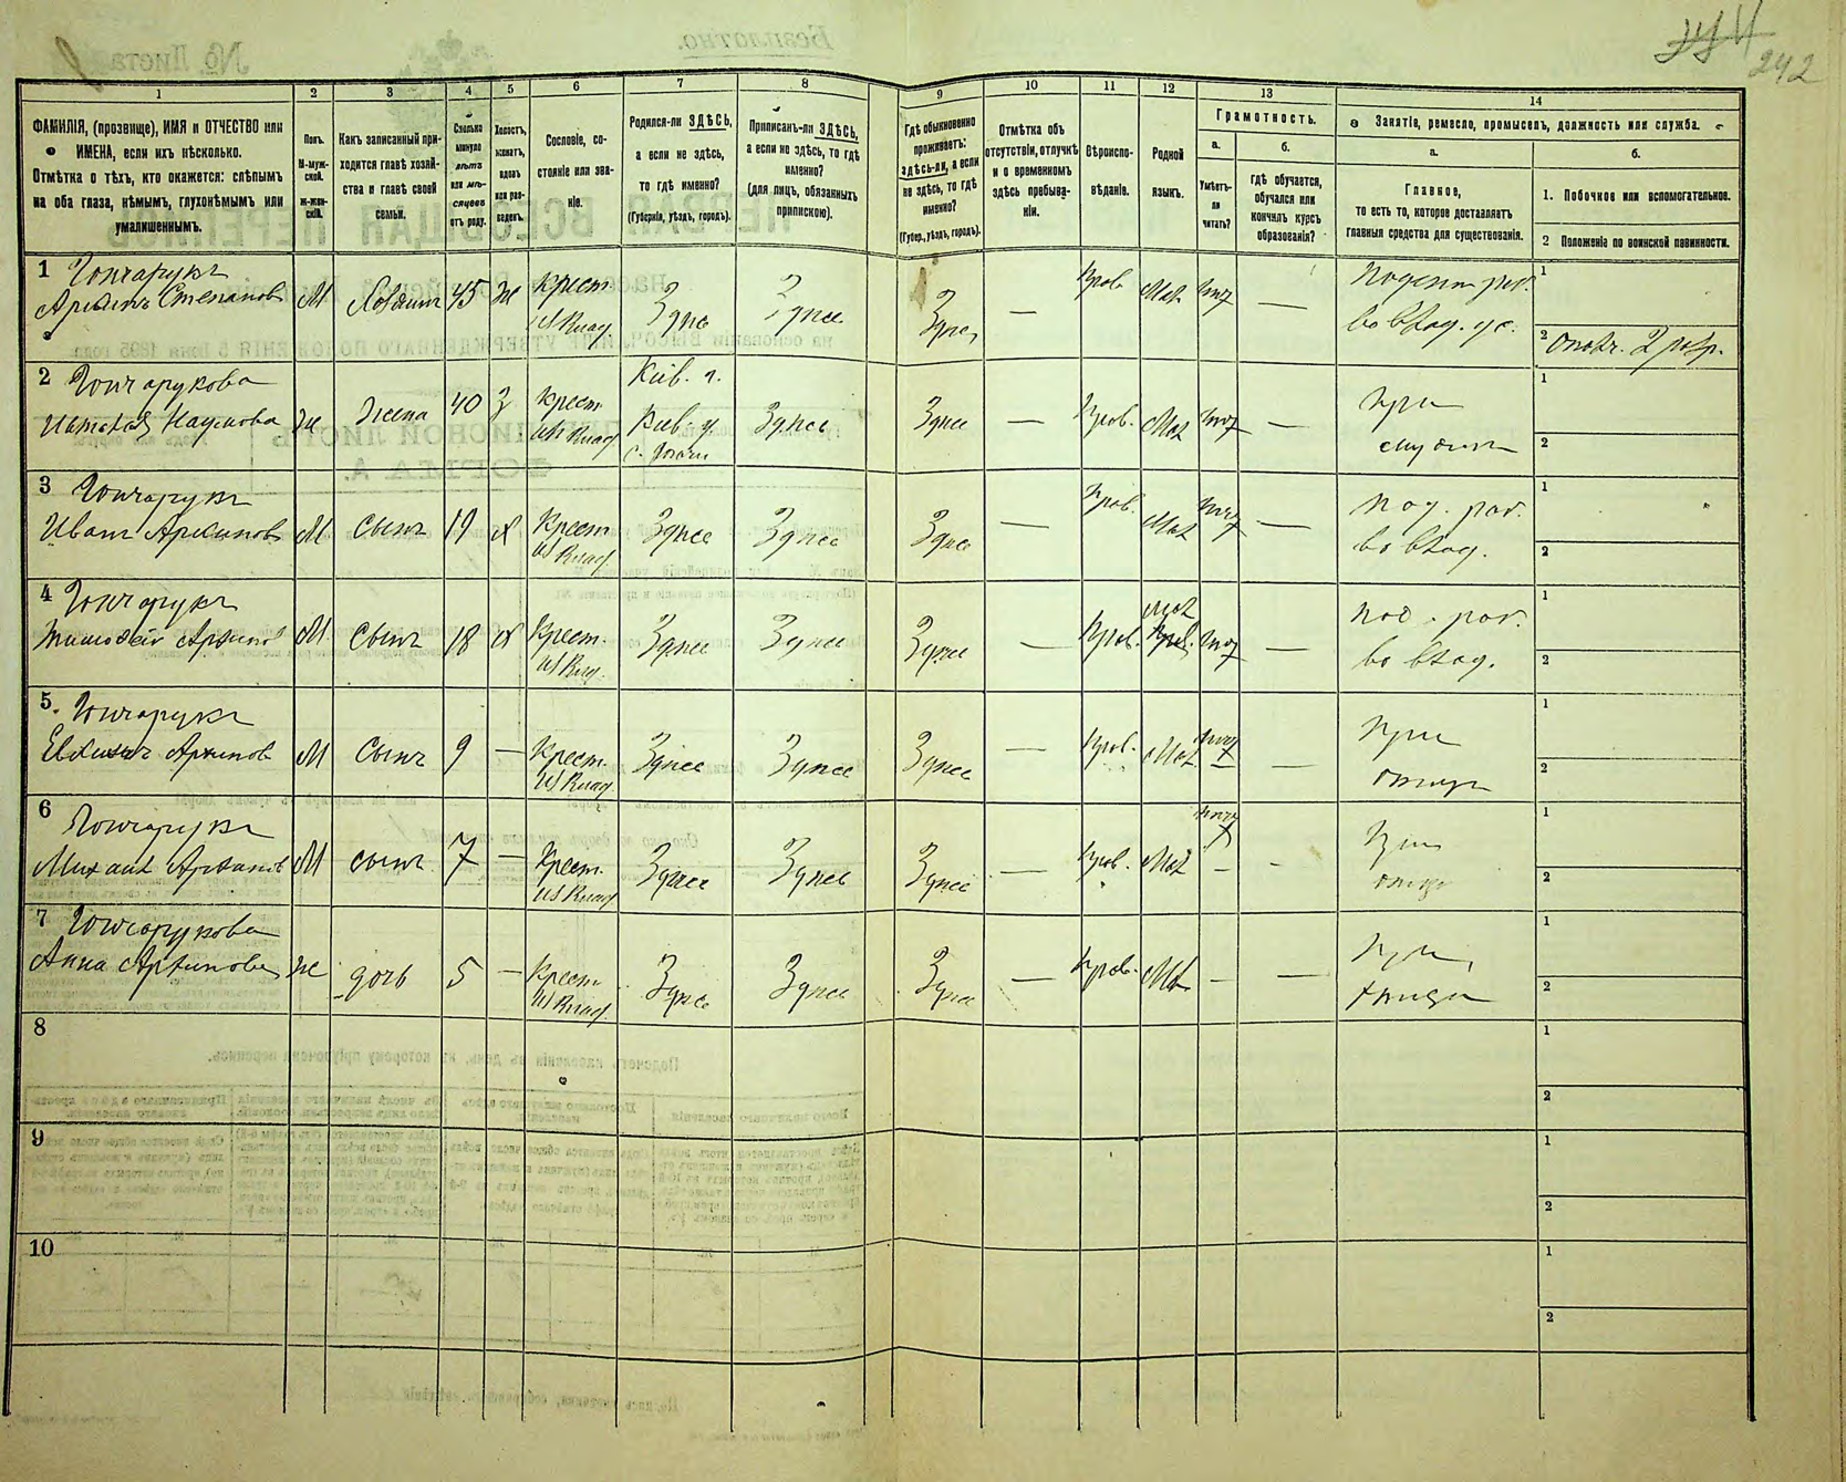 242
1
2
3
4
5
6
7
8
9
10
11
12
13
14
ФАМИЛІЯ, (прозвище), ИМЯ и ОТЧЕСТВО или
ИМЕНА, если ихъ нѣсколько.
Отмѣтка о тѣхъ, кто окажется: слѣпымъ
на оба глаза, нѣмымъ, глухонѣмымъ или
умалишеннымъ.
Полъ.
М-муж-
ской.
ж-жен-
скій.
Какъ записанный при-
ходится главѣ хозяй-
ства и главѣ своей
семьи.
Сколько
минуло
лѣтъ
или мѣ-
сяцевъ
отъ роду.
Холостъ,
женатъ,
вдовъ
или раз-
веденъ.
Сословіе, со-
стояніе или зва-
ніе.
Родился-ли ЗДѢСЬ,
а если не здѣсь,
то гдѣ именно?
(Губернія, уѣздъ, городъ).
Приписанъ-ли ЗДѢСЬ,
а если не здѣсь, то гдѣ
именно?
(для лицъ, обязанныхъ
припискою).
Гдѣ обыкновенно
проживаетъ:
здѣсь-ли, а если
не здѣсь, то гдѣ
именно?
(Губер., уѣздъ, городъ).
Отмѣтка объ
отсутствіи, отлучкѣ
и о временномъ
здѣсь пребыва-
ніи.
Вѣроиспо-
вѣданіе.
Родной
языкъ.
Грамотность.
а.
Умѣетъ-
ли
читать?
б.
Гдѣ обучается,
обучался или
кончилъ курсъ
образованія?
Занятіе, ремесло, промыселъ, должность или служба.
а.
Главное,
то есть то, которое доставляетъ
главныя средства для существованія.
б.
1. Побочное или вспомогательное.
2 Положеніе по воинской повинности.
1 Гончарукъ
Архипъ Степановъ
М
Хозяинъ
45
ж
Крест.
из Влад.
Здѣсь
Здѣсь
Здѣсь
—
Прав.
Мал
—
во влад. ус.
1
2
2 Гончарукова
Наумова
ж
Жена
40
З
Крест.
из Влад
Кіев. г.
Кіев. у
Здѣсь
Здѣсь
—
Прав.
Мал
—
При
1
2
3 Гончарукъ
Иванъ Архиповъ
М
Сынъ
19
х
Крест
из Влад.
Здѣсь
Здѣсь
Здѣсь
—
Прав.
Мал
—
Под. раб.
во влад.
1
2
4 Гончарукъ
Тимофей Архипов
М
Сынъ
18
х
Крест.
из Влад.
Здѣсь
Здѣсь
Здѣсь
—
Прав.
Мал
—
Под. раб.
во влад.
1
2
5. Гончарукъ
Архипов
М
Сынъ
9
—
Крест.
из Влад
Здѣсь
Здѣсь
Здѣсь
—
Прав.
Мал.
—
При
отцѣ
1
2
6 Гончарукъ
Михаил Архипов
М
сынъ
7
—
Крест.
из Влад
Здѣсь
Здѣсь
Здѣсь
—
Прав.
Мал
—
При
отцѣ
1
2
7 Гончарукова
Анна Архипова
ж
дочь
5
—
Крест.
из Влад.
Здѣсь
Здѣсь
Здѣсь
—
Прав.
Мал.
—
—
При
отцѣ
1
2
8
1
2
9
1
2
10
1
2